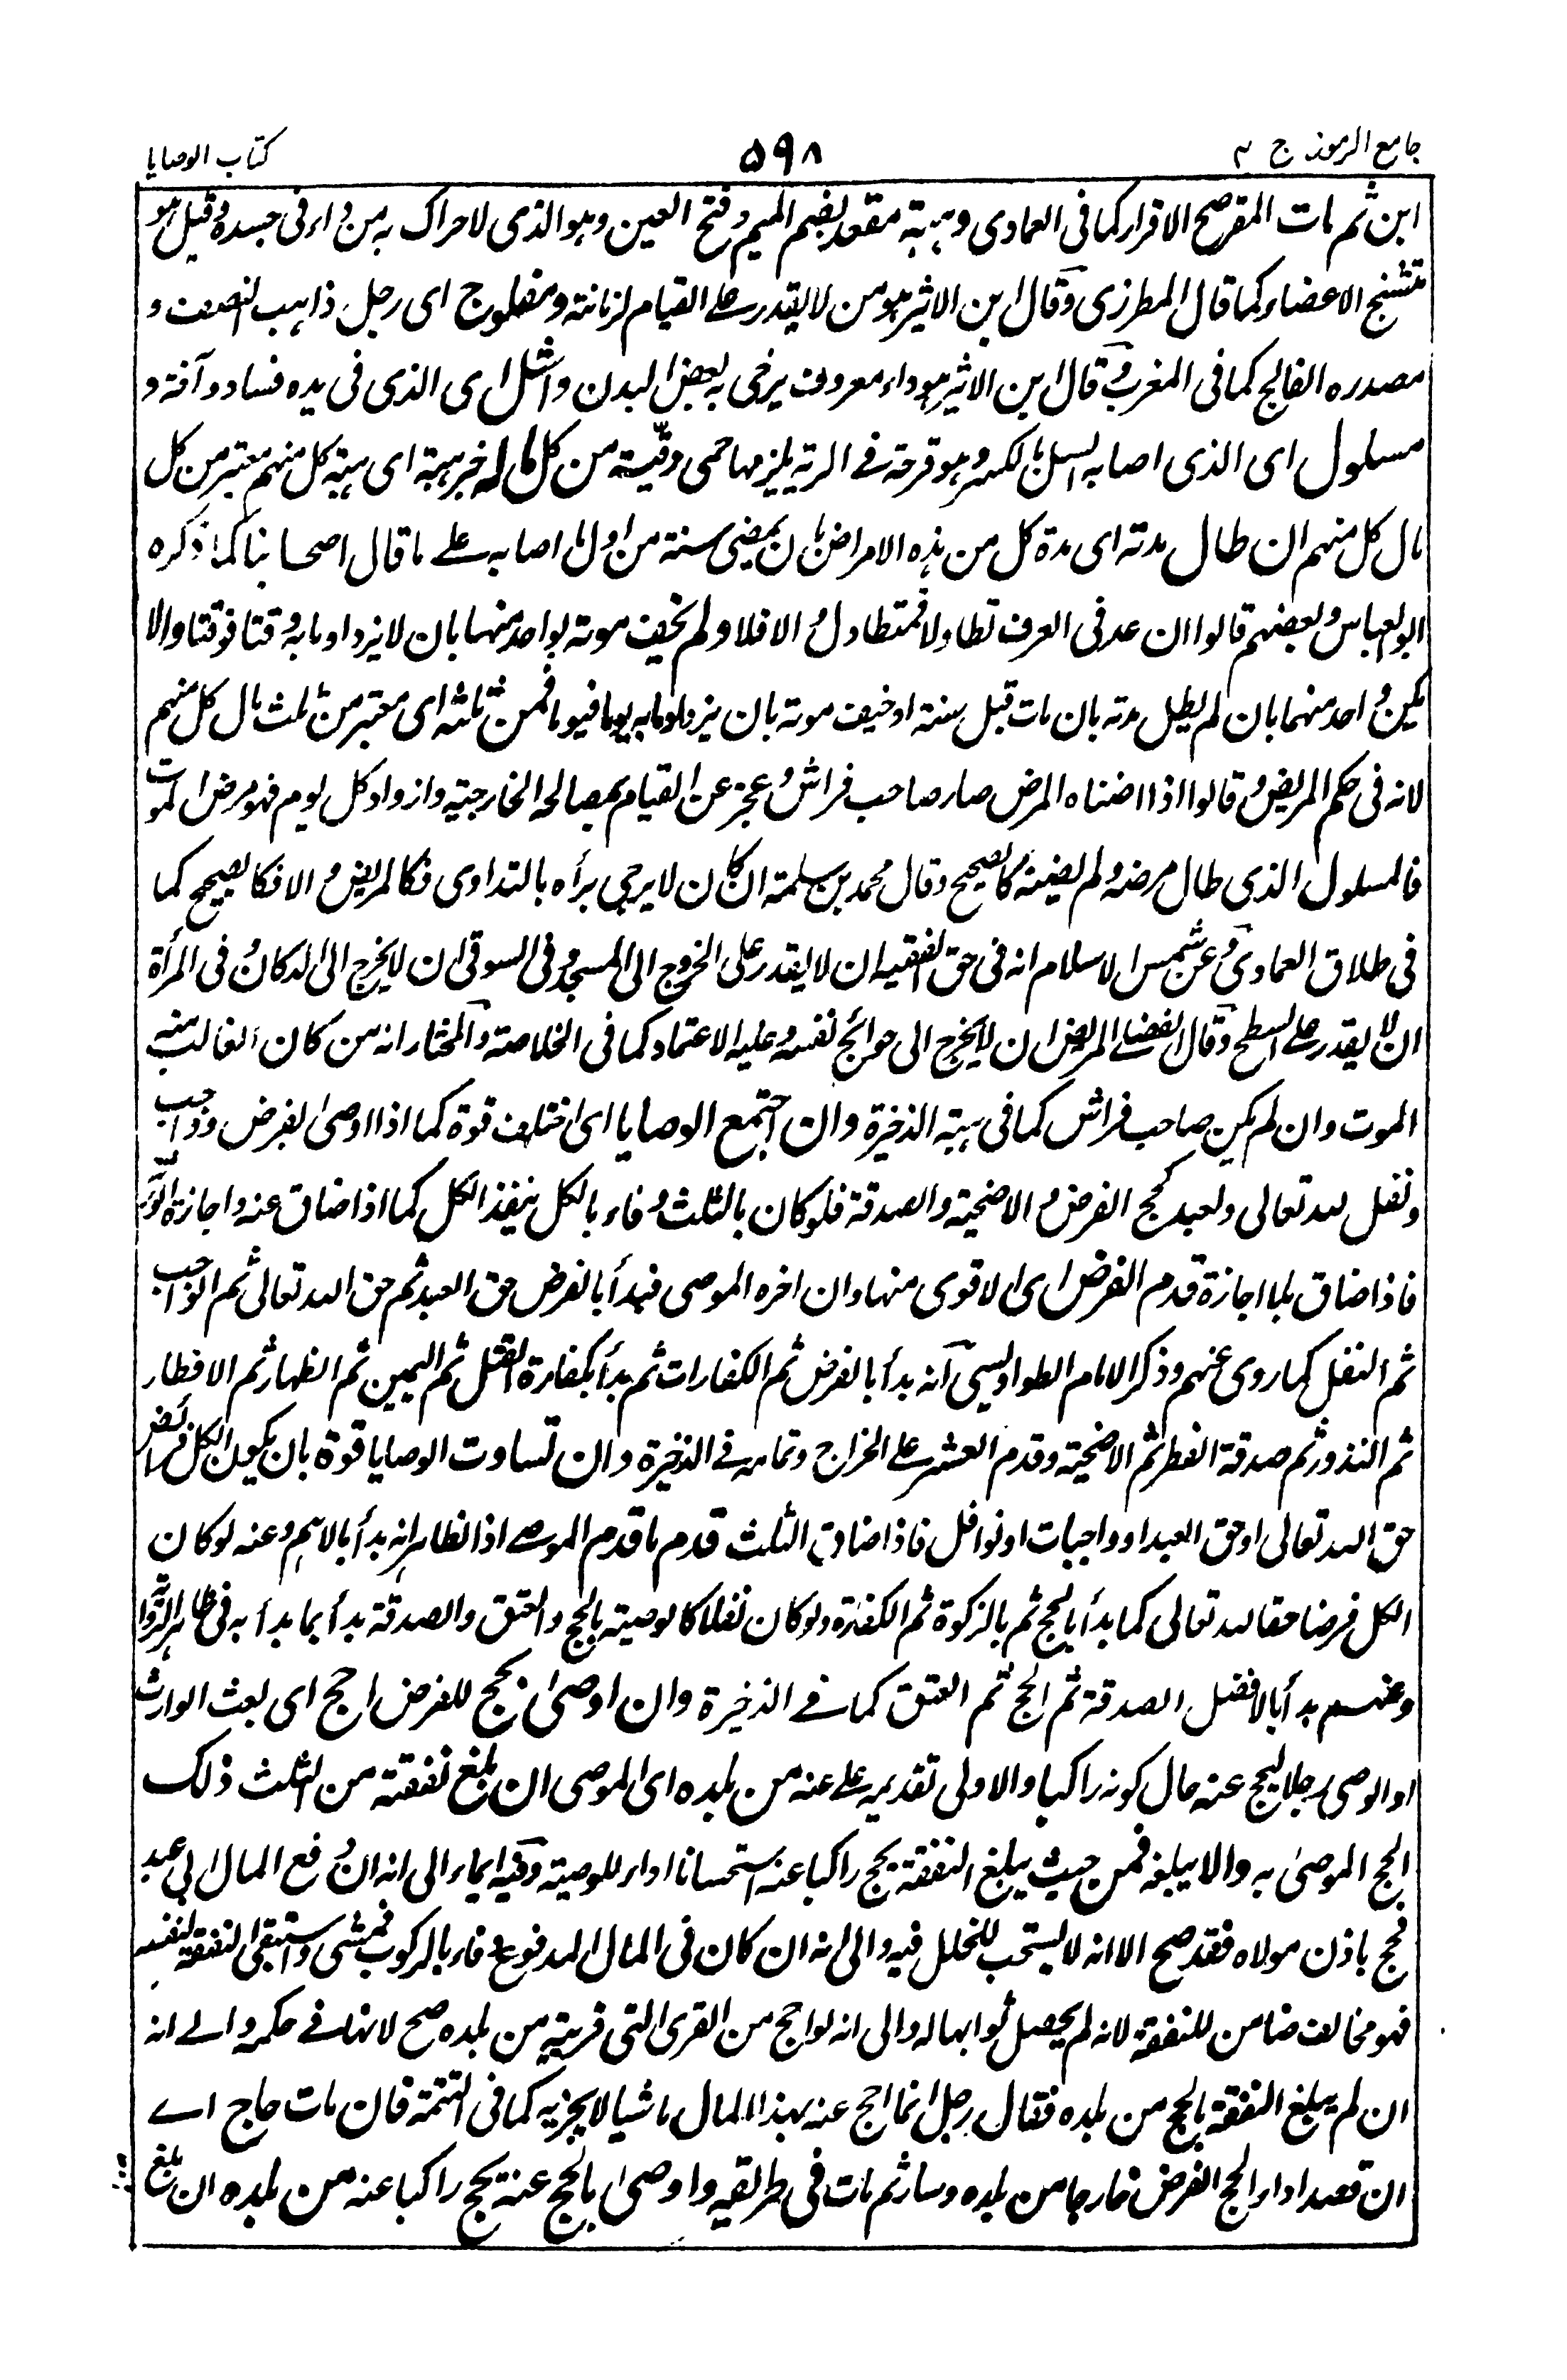 جامع الرموز ج ٢
٥٩٨
كتاب الوصايا
ابن ثم مات المقر صح الاقرار كما فى العمادى وهبة مقعد بضم الميم وفتح العين وهو الذى لا حراك به من داء فى جسده وقيل هو
متشنج الاعضاء كما قال المطرزى وقال ابن الاثير هو من لا يقدر على القيام لزمانة ومفلوج اى رجل ذاهب النصف و
مصدره الفالج كما فى المغرب وقال ابن الاثير هو داء معروف يرخى به بعض البدن واشل اى الذى فى يده فساد وآفة و
مسلول اى الذى اصابه السل بالكسر وهو قرحة فى الرية يلزمها حمى دقيقة من كل ماله خبر هبة اى هبة كل منهم معتبر من كل
مال كل منهم ان طال مدته اى مدة كل من هذه الامراض بان يمضى سنة من اول ما اصابه على ما قال اصحابنا كما ذكره
ابو العباس وبعضهم قالوا ان عد فى العرف تطاولا فمتطاول والا فلا ولم يخف موته بواحد منها بان لا يزداد ما به وقتا فوقتا والا
يكن واحد منهما بان لم يطل مدته بان مات قبل سنة او خيف موته بان يزداد ما به يوما فيوما فمن ثلثه اى معتبر من ثلث مال كل منهم
لانه فى حكم المريض وقالوا اذا اضناه المرض صار صاحب فراش وعجز عن القيام بمصالحه الخارجية وازداد كل يوم فهو مرض الموت
فالمسلول الذى طال مرضه ولم يضنه كالصحيح وقال محمد بن سلمة ان كان لا يرجى برأه بالتداوى فكالمريض والا فكالصحيح كما
فى طلاق العمادى وعن شمس الاسلام انه فى حق الفقيه ان لا يقدر على الخروج الى المسجد وفى السوقى ان لا يخرج الى الدكان وفى المرأة
ان لا يقدر على السطح وقال الفضلى المريض ان لا يخرج الى حوائج نفسه وعليه الاعتماد كما فى الخلاصة والمختار انه من كان الغالب منه
الموت وان لم يكن صاحب فراش كما فى هبة الذخيرة وان اجتمع الوصايا اى اختلف قوة كما اذا اوصى بفرض وواجب
ونفل لله تعالى ولعبد كحج الفرض والاضحية والصدقة فلو كان بالثلث وفاء بالكل ينفذ الكل كما اذا ضاق عنه واجازه الورثة
فاذا ضاق بلا اجازة قدم الفرض اى الاقوى منها وان اخره الموصى فبدأ بالفرض حق العبد ثم حق الله تعالى ثم الواجب
ثم النفل كما روى عنهم وذكر الامام الطواويسى انه بدأ بالفرض ثم الكفارات ثم بدأ بكفارة القتل ثم اليمين ثم الظهار ثم الافطار
ثم النذور ثم صدقة الفطر ثم الاضحية وقدم العشر على الخراج وتمامه فى الذخيرة وان تساوت الوصايا قوة بان يكون الكل فرائض
حق الله تعالى او حق العبد او واجبات او نوافل فاذا ضاق الثلث قدم ما قدم الموصى اذ الظاهر انه بدأ بالاهم وعنه لو كان
الكل فرضا حقا لله تعالى كما بدأ بالحج ثم بالزكوة ثم الكفارة ولو كان نفلا كالوصية بالحج والعتق والصدقة بدأ بما بدأ به فى ظاهر الرواية
وعنهم بدأ بالافضل الصدقة ثم الحج ثم العتق كما فى الذخيرة وان اوصى بحج للفرض احج اى بعث الوارث
او الوصى رجلا ليحج عنه حال كونه راكبا والاولى تقديمه على عنه من بلده اى الموصى ان بلغ نفقته من الثلث ذلك
الحج الموصى به والا يبلغه فمن حيث يبلغ النفقة يحج راكبا عنه استحسانا اداء للوصية وفيه ايماء الى انه ان دفع المال الى عبد
فحج باذن مولاه فقد صح الا انه لا يستحب للخلل فيه والى انه ان كان فى المال المدفوع وفاء بالركوب فمشى واستبقى النفقة لنفسه
فهو مخالف ضامن للنفقة لانه لم يحصل ثوابها له والى انه لو احج من القرى التى قريبة من بلده صح لانها فى حكمه والى انه
ان لم يبلغ النفقة بالحج من بلده فقال رجل انا احج عنه بهذا المال ماشيا لا يجزيه كما فى التتمة فان مات حاج اى
ان قصد اداء الحج الفرض خارجا من بلده وسار ثم مات فى طريقه واوصى بالحج عنه يحج راكبا عنه من بلده ان بلغ